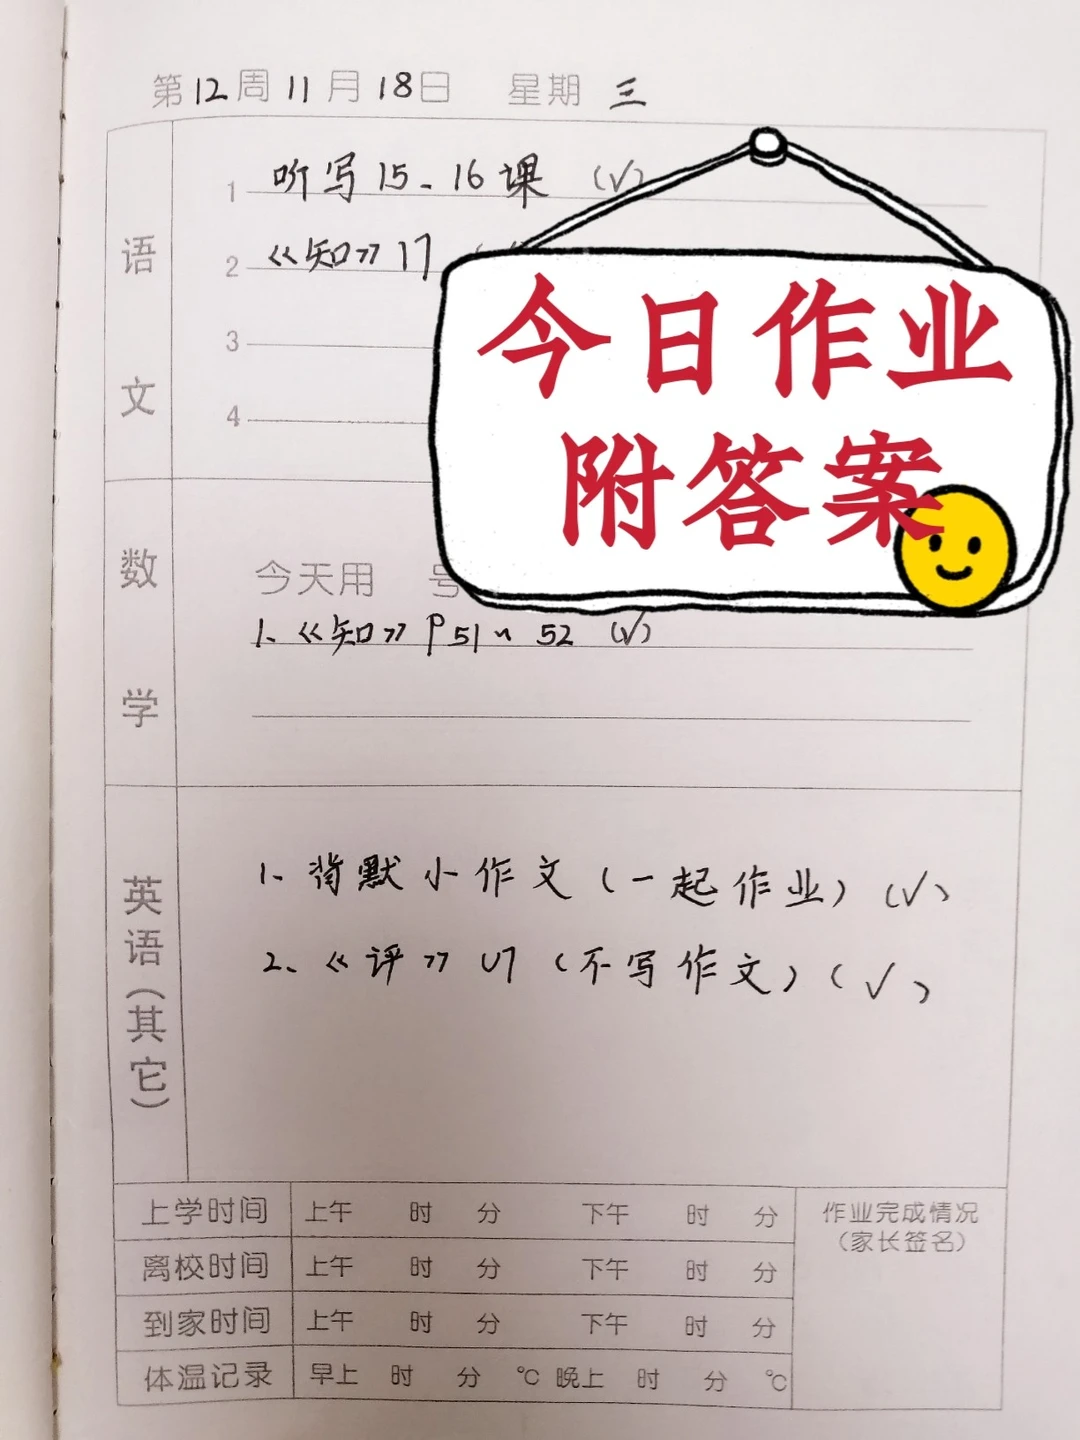 第12周11月18日 星期三
语文
1 听写15、16课 (√)
2 《知》17
3
4
今日作业
附答案
数学
今天用 号
1、《知》P51~52 (√)
英语(其它)
1、背默小作文(一起作业)(√)
2、《评》U7(不写作文)(√)
上学时间 上午 时 分 下午 时 分
离校时间 上午 时 分 下午 时 分
到家时间 上午 时 分 下午 时 分
体温记录 早上 时 分 ℃ 晚上 时 分 ℃
作业完成情况
(家长签名)